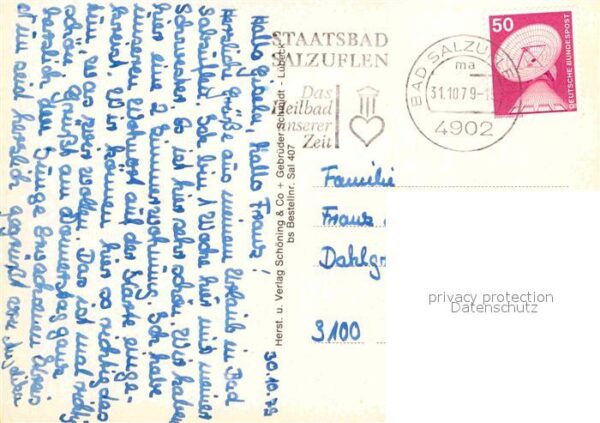 STAATSBAD
SALZUFLEN
Das
Heilbad
unserer
Zeit
BAD SALZUFLEN
ma
31.10.79-1
4902
50
DEUTSCHE BUNDESPOST
30.10.79
Hallo Gisela, Hallo Franz!
Herzliche Grüße aus meinem Urlaub in Bad
Salzuflen. Ich bin 1 Woche hier mit meiner
Schwester. Es ist hier sehr schön. Wir haben
hier eine 2 Zimmerwohnung. Ich habe
unseren Wohnort auf der Karte einge-
kreist. Wir können hier so richtig das
tun was wir wollen. Das ist mal richtig
schön. Grüßt am Donnerstag ganz
herzlich den Junge Erwachsenen Kreis
Ihr seid herzlich gegrüßt von
Herst. u. Verlag Schöning & Co + Gebrüder Schmidt - Lübeck
bs Bestellnr. Sal 407
Familie
Franz
Dahlgr
3100
privacy protection
Datenschutz